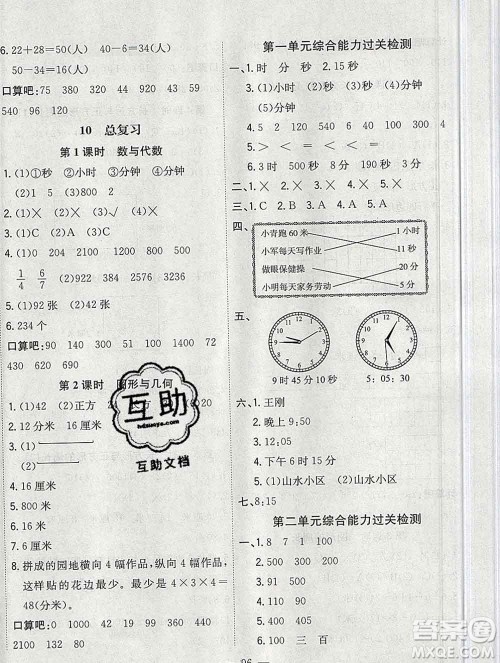 6.22+28=50(人) 40-6=34(人)
50-34=16(人)
口算吧:75 380 340 320 38 90 89
540 96 120
10 总复习
第1课时 数与代数
1.(1)①秒 ②小时 ③分钟 ④分钟
(2)1 5
2.(1)✓ (2)× (3)√ (4)×
4.(1)0 204 2100 1200 1500 900
1/4 6/7 (2)822 2184 2328 3236
5.(1)92张 (2)42张
6.234个
口算吧:9100 1400 90 100 42 720
430 690 820
第2课时 图形与几何
1.(1)42 (2)正方
2.12分米 16厘米
3.(1)
(2)
4.16厘米
5.800米
6.18厘米
8.拼成的园地横向4幅作品,纵向4幅作品,
这样贴的花边最少。最少需要4×3×4=
48(分米)。
口算吧:90 1000 29 1000 440 44
2100 152 80
第一单元综合能力过关检测
一、1.时 分 秒 2.15秒
3.(1)分钟 (2)秒 (3)小时 (4)分钟
(5)分钟
4.< > < = > <
5.2 5 120 300 1 300
6.3 时 187秒 180秒 3分
二、×××√×
三、1.A 2.A 3.C 4.A 5.A
四、
小青跑60米 1小时
小军每天写作业 11秒
做眼保健操 20分
小明每天家务劳动 5分
五、
9时45分10秒 5:05:30
六、1.王刚
2.晚上9:50
3.(1)>
4.下午6时15分
5.(1)山水小区 (2)山水小区
七、8:15
第二单元综合能力过关检测
一、1.8 7 1 100
2.300 500
3.90 54
4.90 92
5.110 900
6.100 三 百
互助
hdzuoye.com
互助文档
作业精灵
96